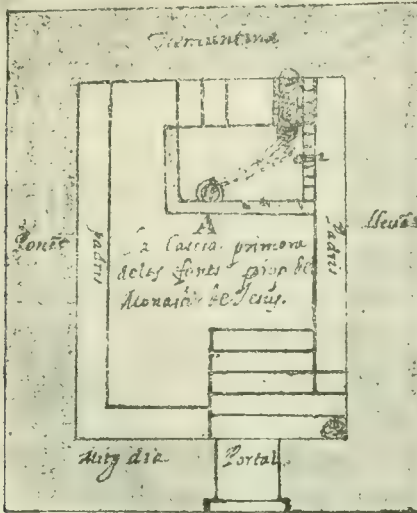 Tramuntana
Ponēt
Padris
A
La Caseta primera
deles fonts prop del
Monastir de Jesus.
Padris
Mitg dia
Portal